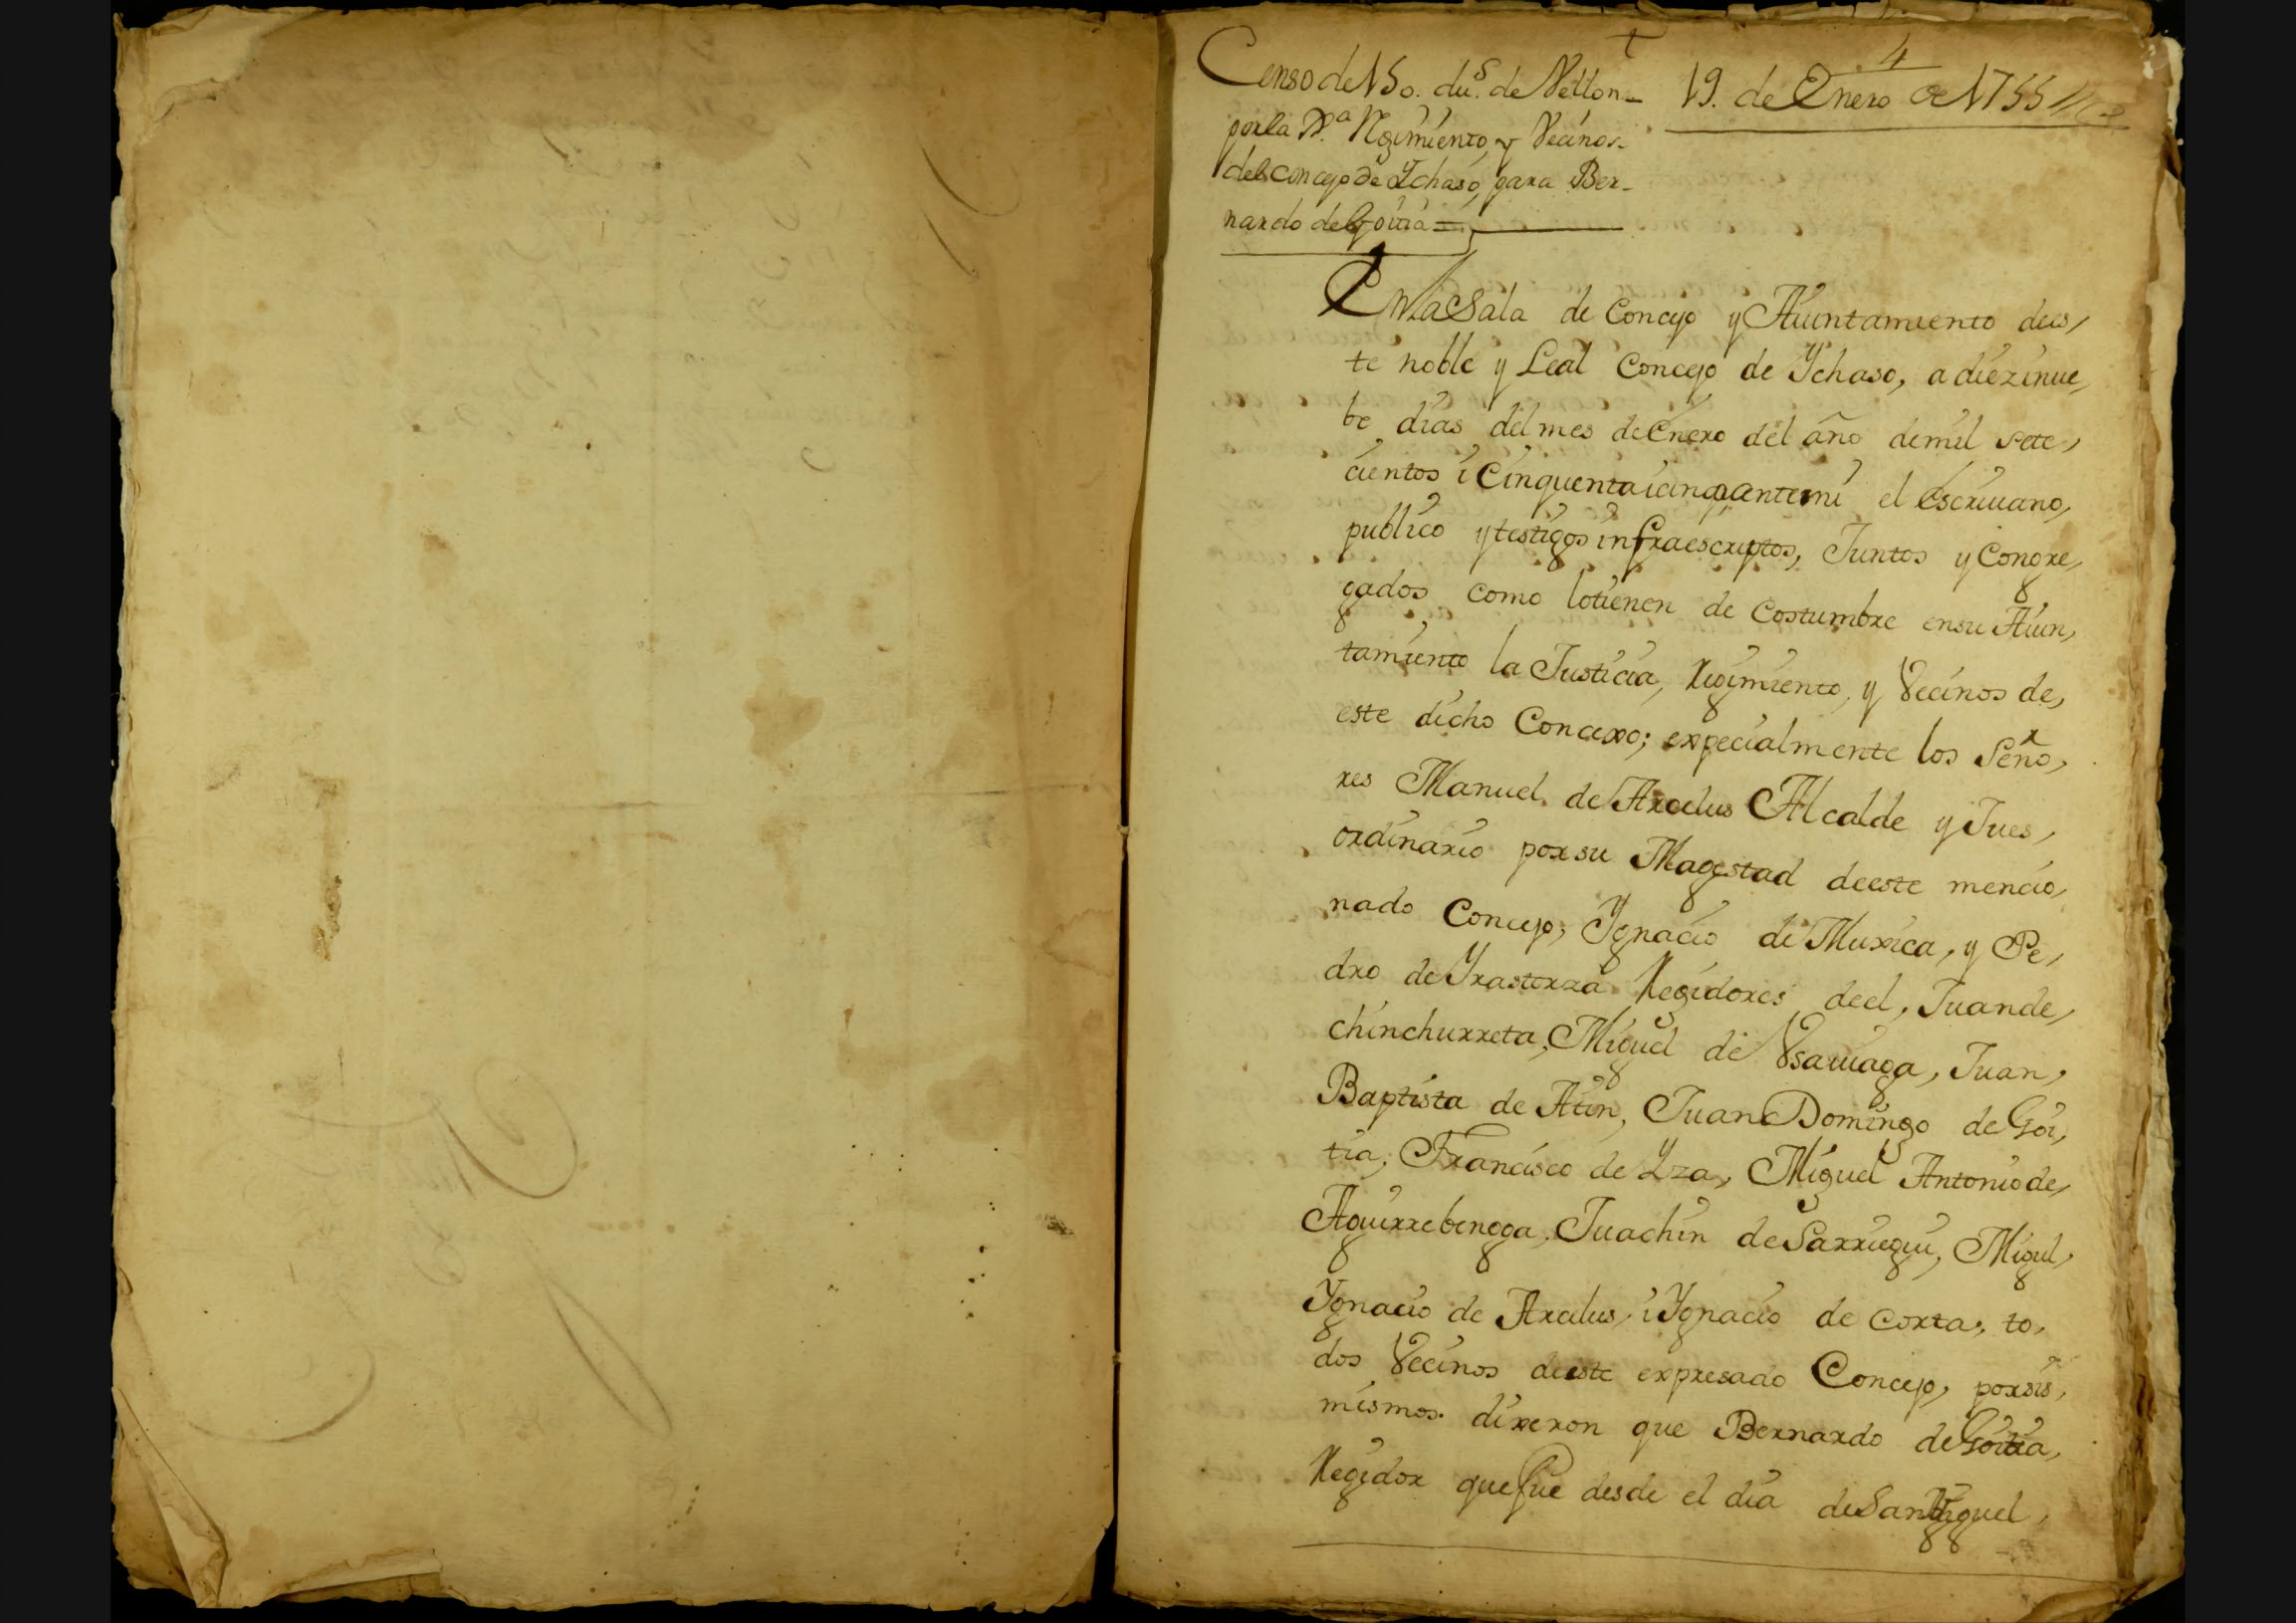 4
Censo de 150. du.s de Vellon
19. de Enero de 1755
por la Jª. Regimiento, y Vecinos
del concejo de Ychaso, para Ber-
nardo de Goitia =
En la Sala de Concejo y Aiuntamiento des,
te noble y Leal Concejo de Ychaso, a diezinue,
be dias del mes de Enero del año de mil sete,
cientos i Cinquenta i cinco, ante mi el escriuano,
publico y testigos infraescriptos, Juntos y Congre,
gados como lo tienen de Costumbre en su Aiun,
tamiento la Justicia, Regimiento, y Vecinos de,
este dicho Concexo; expecialmente los Seño,
res Manuel de Arcelus Alcalde y Jues,
ordinario por su Magestad de este mencio,
nado Concejo, Ygnacio de Muxica, y Pe,
dro de Yrastorza Regidores de el, Juan de,
chinchurreta, Miguel de Vsauiaga, Juan,
Baptista de Atin, Juan Domingo de Goi,
tia, Francisco de Yza, Miguel Antonio de,
Aguirrebengoa, Juachin de Sarriegui, Migul,
Ygnacio de Arcelus, i Ygnacio de Corta, to,
dos Vecinos deeste expresado Concejo, por sis,
mismos. dixeron que Bernardo de Goitia,
Regidor que fue desde el dia de San Miguel,